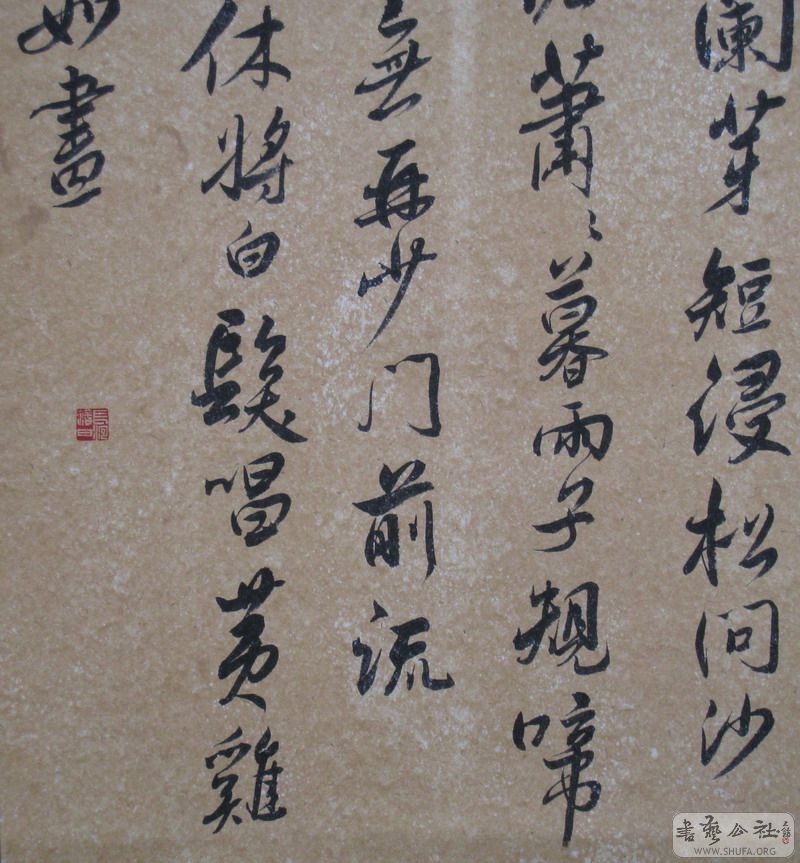 芽短浸松间沙
蕭〻暮雨子規啼
無再少门前流
休將白髮唱黃雞
如畫
書藝公社
WWW.SHUFA.ORG